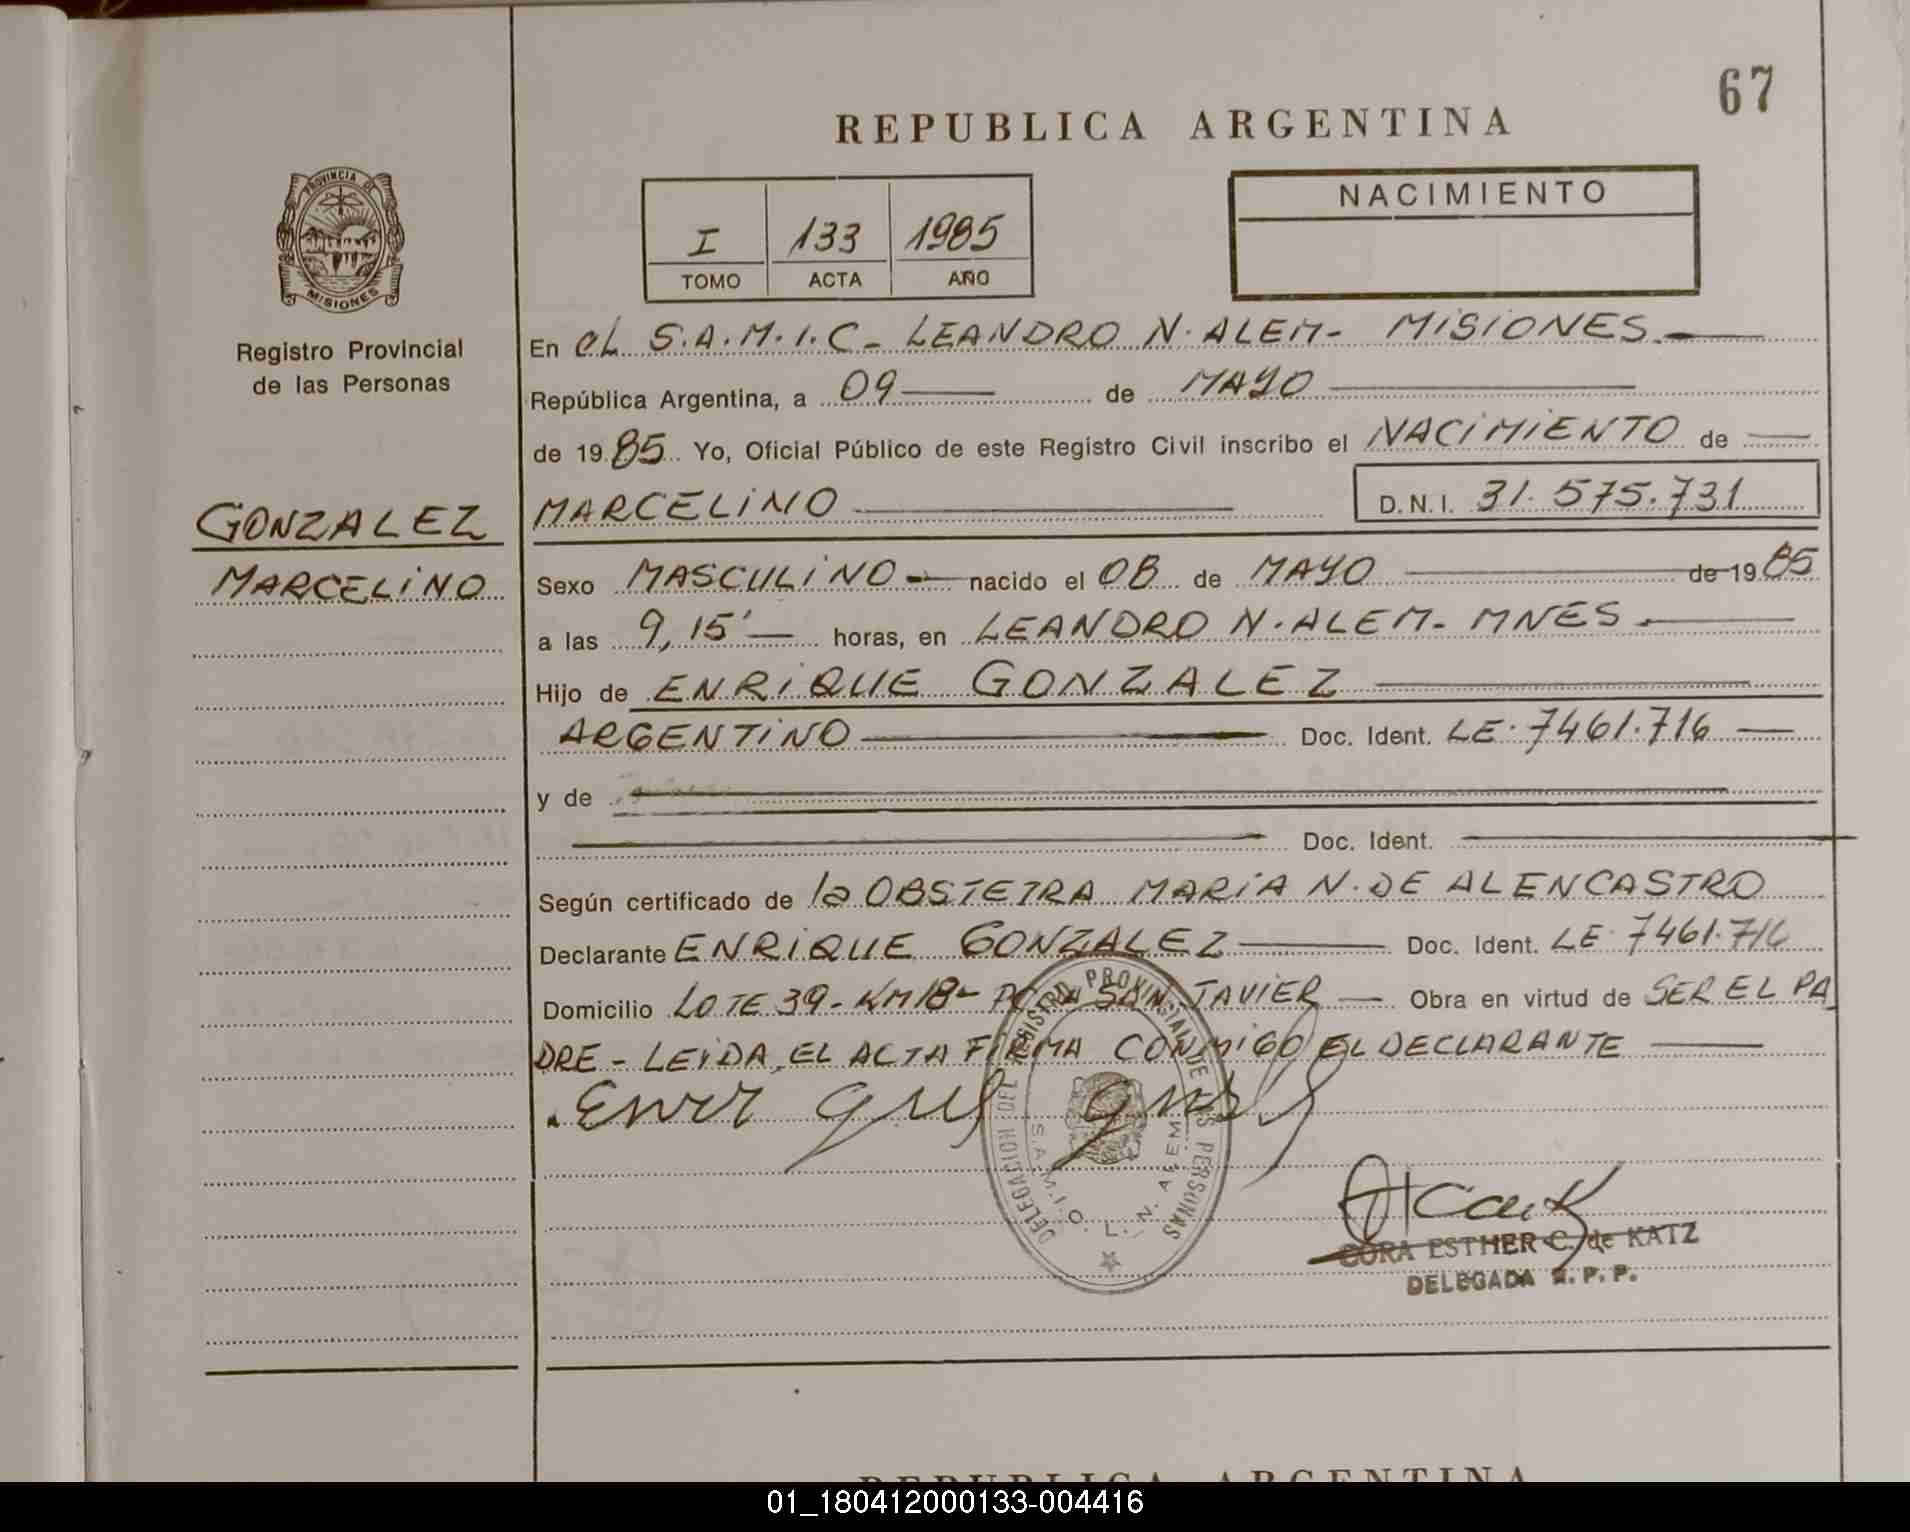 67
REPUBLICA ARGENTINA
PROVINCIA DE
MISIONES
Registro Provincial
de las Personas
I 133 1985
TOMO ACTA AÑO
NACIMIENTO
En el S.A.M.I.C- LEANDRO N. ALEM- MISIONES.-
República Argentina, a 09 de MAYO
de 1985 Yo, Oficial Público de este Registro Civil inscribo el NACIMIENTO de
GONZALEZ
MARCELINO
MARCELINO D.N.I. 31.575.731
Sexo MASCULINO nacido el 08 de MAYO de 1985
a las 9,15' horas, en LEANDRO N. ALEM- MNES.
Hijo de ENRIQUE GONZALEZ
ARGENTINO Doc. Ident. LE. 7461.716
y de
Doc. Ident.
Según certificado de la OBSTETRA MARIA N. DE ALENCASTRO
Declarante ENRIQUE GONZALEZ Doc. Ident. LE 7461.716
Domicilio LOTE 39- KM 18- SAN JAVIER Obra en virtud de SER EL PA
DRE - LEIDA EL ACTA FIRMA CONMIGO EL DECLARANTE
DELEGACION DEL REGISTRO PROVINCIAL DE LAS PERSONAS
S.A.M.I.C. L. N. ALEM
CORA ESTHER C. de KATZ
DELEGADA R. P. P.
REPUBLICA ARGENTINA
01_180412000133-004416